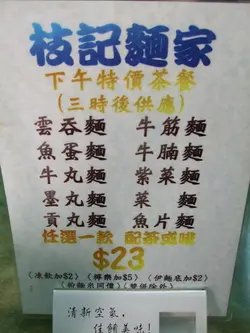 枝記麵家
下午特價茶餐
(三時後供應)
雲吞麵 牛筋麵
魚蛋麵 牛腩麵
牛丸麵 紫菜麵
墨丸麵 菜 麵
貢丸麵 魚片麵
任選一款 配茶或啡
$23
(凍飲加$2) (檸樂加$5) (伊麵底加$2)
(雙併除外)
清新空氣,
佳餚美味!